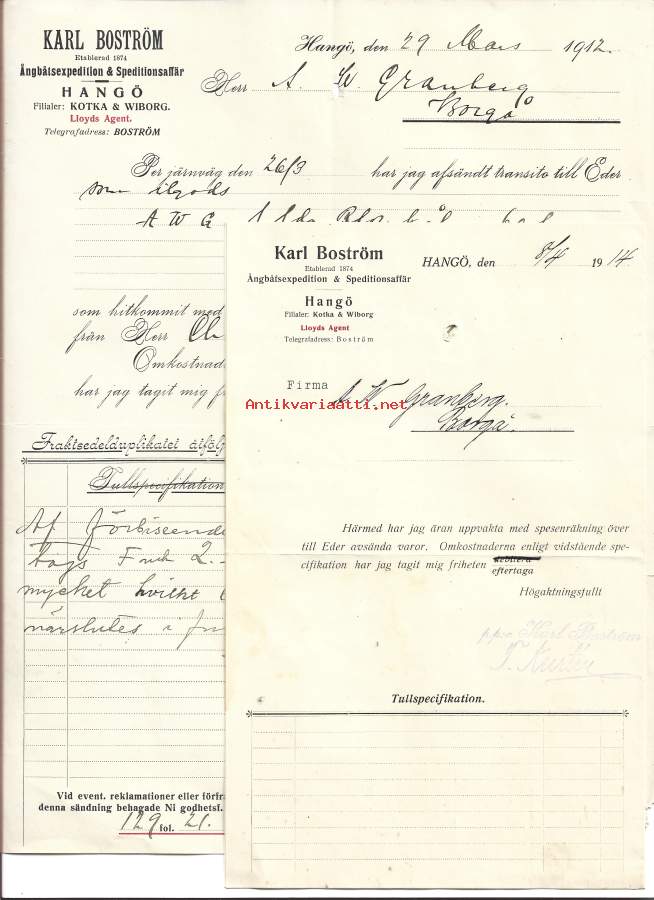 KARL BOSTRÖM
Etablerad 1874
Ångbåtsexpedition & Speditionsaffär
HANGÖ
Filialer: KOTKA & WIBORG.
Lloyds Agent.
Telegrafadress: BOSTRÖM
Hangö, den 29 Mars 1912.
Herr A. W. Granberg
Borgå
Per järnväg den 26/3 har jag afsändt transito till Eder
som ilgods
A W G 1
som hitkommit med
från Herr
Omkostnade
har jag tagit mig fr
Fraktsedelduplikatet åtfölj
Tullspecifikation
Af förbiseende
togs Fmk 2.-
mycket hvilket
närslutes i
Vid event. reklamationer eller förfrå
denna sändning behagade Ni godhetsf.
129 fol. 21.
Karl Boström
Etablerad 1874
Ångbåtsexpedition & Speditionsaffär
Hangö
Filialer: Kotka & Wiborg
Lloyds Agent
Telegrafadress: Boström
HANGÖ, den 8/4 1914
Firma A W Granberg.
Borgå.
Antikvariaatti.net
Härmed har jag äran uppvakta med spesenräkning över
till Eder avsända varor. Omkostnaderna enligt vidstående spe-
cifikation har jag tagit mig friheten debitera
eftertaga
Högaktningsfullt
ppa Karl Boström
Tullspecifikation.